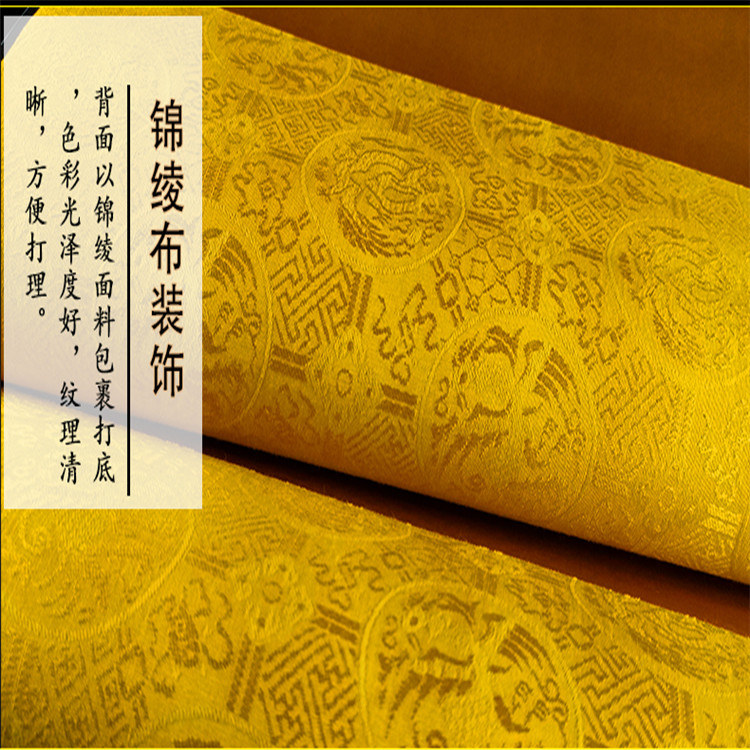 锦绫布装饰
背面以锦绫面料包裹打底
，色彩光泽度好，纹理清
晰，方便打理。